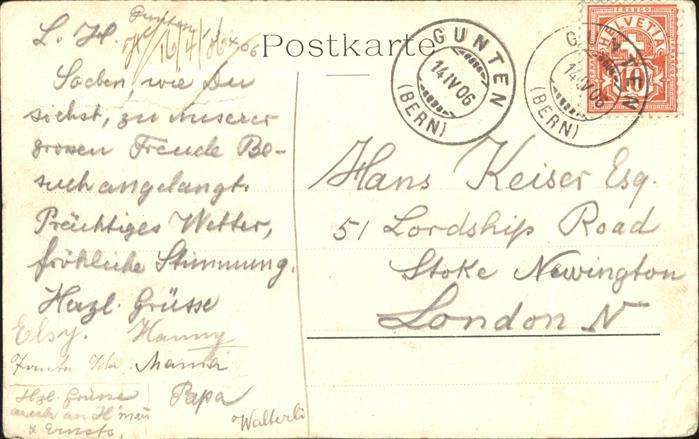 Postkarte
GUNTEN
14 IV 06
(BERN)
GUNTEN
14 IV 06
(BERN)
FRANCO
HELVETIA
10
L. H.
Soeben, wie Du
siehst, zu unserer
grossen Freude Be-
such angelangt.
Prächtiges Wetter,
fröhliche Stimmung.
Herzl. Grüsse
Elsy. Hanny
Tante Ida Mama
Papa
Walterli
Hzl. Grüsse
auch an
& Ernesto.
Hans Keiser Esq.
51 Lordship Road
Stoke Newington
London N